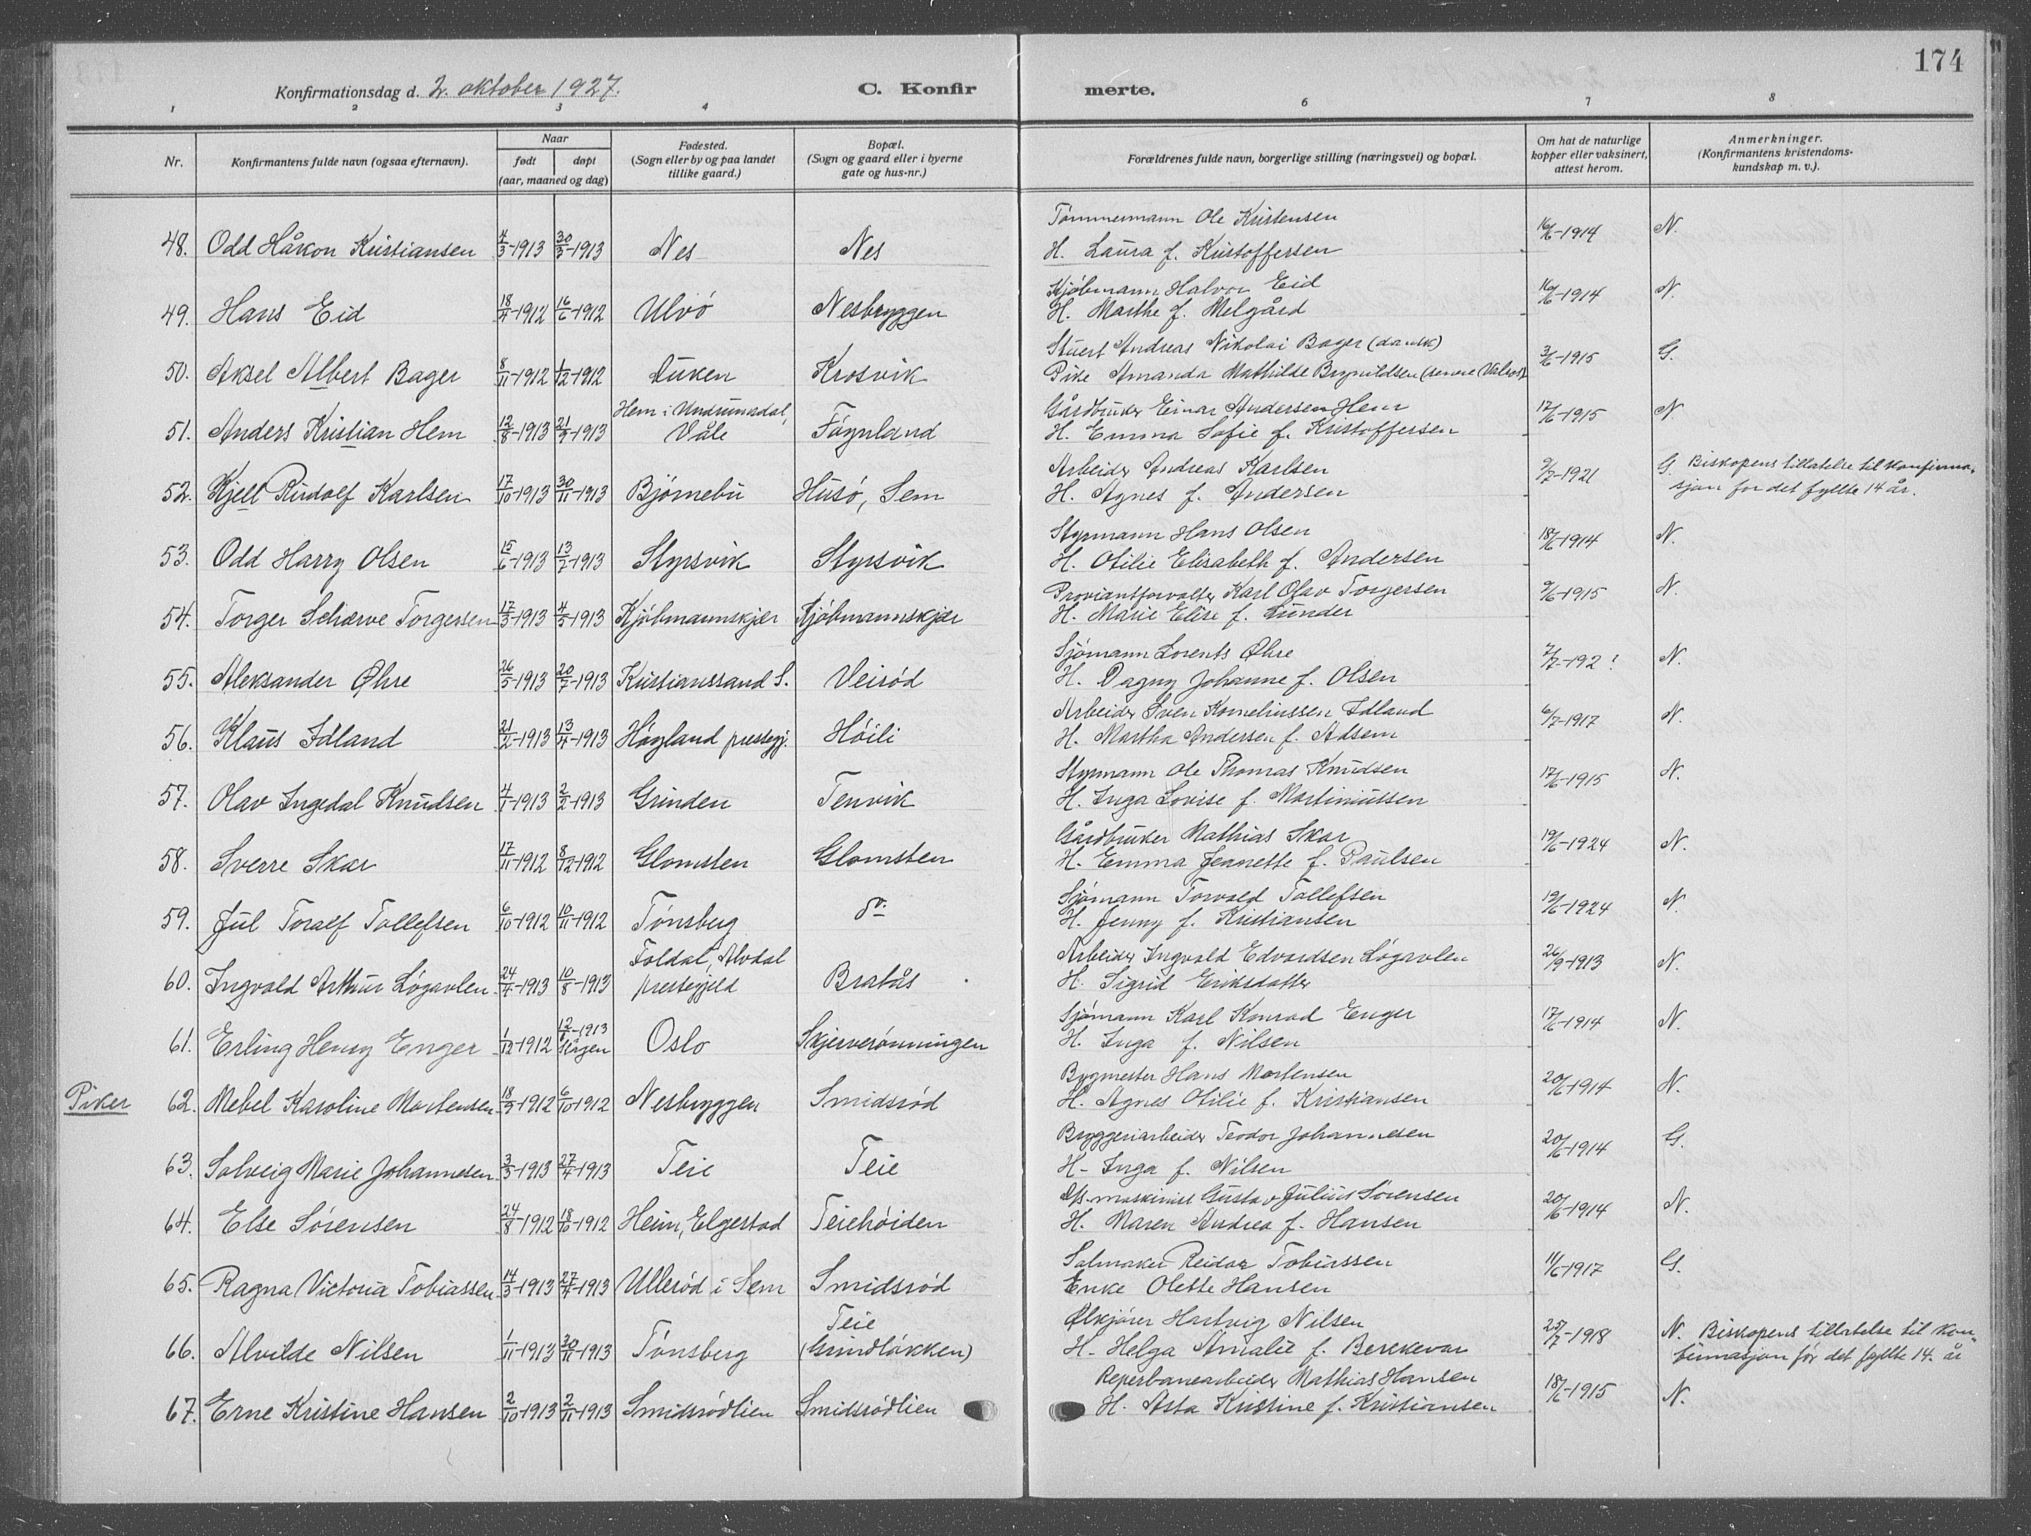 174
Konfirmationsdag d. 2. oktober 1927.
C. Konfirmerte.
1 2 3 4 5 6 7 8
Nr.
Konfirmantens fulde navn (ogsaa efternavn).
Naar
født døpt
(aar, maaned og dag)
Fødested.
(Sogn eller by og paa landet
tillike gaard.)
Bopæl.
(Sogn og gaard eller i byerne
gate og hus-nr.)
Forældrenes fulde navn, borgerlige stilling (næringsvei) og bopæl.
Om hat de naturlige
kopper eller vaksinert,
attest herom.
Anmerkninger.
(Konfirmantens kristendoms-
kundskap m. v.).
48. Odd Håkon Kristiansen 4/3-1913 30/3-1913 Nes Nes Tømmermann Ole Kristensen 16/6-1914 N.
H. Laura f. Kristoffersen
49. Hans Eid 18/4-1912 16/6-1912 Ulvö Nesbryggen Kjøbmann Halvor Eid 16/6-1914 N.
H. Marthe f. Melgård
50. Aksel Albert Bager 8/11-1912 1/12-1912 Duken Krosvik Stuert Andreas Nikolai Bager (dansk) 3/6-1915 G.
Pike Amanda Mathilde Brynildsen
51. Anders Kristian Hem 12/8-1913 21/9-1913 Hem i Undrumsdal, Våle Føynland Gårdbruker Einar Andersen Hem 17/6-1915 N.
H. Emma Sofie f. Kristoffersen
52. Kjell Rudolf Karlsen 17/10-1913 30/11-1913 Bjørnebu Husö, Sem Arbeider Andreas Karlsen 9/7-1921 G. Biskopens tillatelse til konfirma-
H. Agnes f. Andersen sjon før det fyllte 14 år.
53. Odd Harry Olsen 15/6-1913 13/7-1913 Styrsvik Styrsvik Styrmann Hans Olsen 18/6-1914 N.
H. Otilie Elisabeth f. Andersen
54. Torger Scherve Torgersen 17/3-1913 4/5-1913 Kjøbmannskjær Kjøbmannskjær Proviantforvalter Karl Olav Torgersen 9/6-1915 N.
H. Marie Elise f. Lunder
55. Aleksander Øhre 26/5-1913 20/7-1913 Kristianssand S. Veiröd Sjømann Lorents Øhre 7/7-192 N.
H. Dagny Johanne f. Olsen
56. Klaus Idland 21/2-1913 13/4-1913 Högland prestegj. Höili Arbeider Sven Korneliussen Idland 6/7-1917 N.
H. Martha Andersen f. Adsem
57. Olav Ingedal Knudsen 4/1-1913 2/2-1913 Grinden Tenvik Styrmann Ole Thomas Knudsen 17/6-1915 N.
H. Inga Lovise f. Martiniussen
58. Sverre Skar 17/11-1912 8/12-1912 Glomsten Glomsten Gårdbruker Mathias Skar 19/6-1924 N.
H. Emma Jeanette f. Paulsen
59. Jul Toralf Tollefsen 6/10-1912 10/11-1912 Tönsberg do. Sjømann Torvald Tollefsen 19/6-1924 N.
H. Jenny f. Kristiansen
60. Ingvald Arthur Løgavlen 24/4-1913 10/8-1913 Foldal, Alvdal prestegjeld Bratås Arbeider Ingvald Edvardsen Løgavlen 26/9-1913 N.
H. Sigrid Eriksdatter
61. Erling Henry Enger 1/12-1912 12/1-1913 Skagen Oslo Skjerverønningen Sjømann Karl Konrad Enger 17/6-1914 N.
H. Inga f. Nilsen
Piker 62. Mebel Karoline Mortensen 18/9-1912 6/10-1912 Nesbryggen Smidsröd Bygmester Hans Mortensen 20/6-1914 N.
H. Agnes Otilie f. Kristiansen
63. Solveig Marie Johannesen 3/3-1913 27/4-1913 Teie Teie Bryggeriarbeider Teodor Johannesen 20/6-1914 G.
H. Inga f. Nilsen
64. Else Sørensen 24/8-1912 18/10-1912 Heim, Elgestad Teiehöiden D/s-maskinist Gustav Julius Sørensen 20/6-1914 N.
H. Maren Andrea f. Hansen
65. Ragna Victoria Tobiassen 14/3-1913 27/4-1913 Ulleröd i Sem Smidsröd Salmaker Reidar Tobiassen 11/6-1917 G.
Enke Olette Hansen
66. Alvilde Nilsen 1/11-1913 30/11-1913 Tönsberg Teie (Grindløkken) Ølkjører Hartvig Nilsen 25/7-1918 N. Biskopens tillatelse til kon-
H. Helga Amalie f. Berkevar firmasjon før det fyllte 14. år
67. Erne Kristine Hansen 2/10-1913 2/11-1913 Smidsrödlien Smidsrödlien Reperbanearbeider Mathias Hansen 18/6-1915 N.
H. Asta Kristine f. Kristiansen